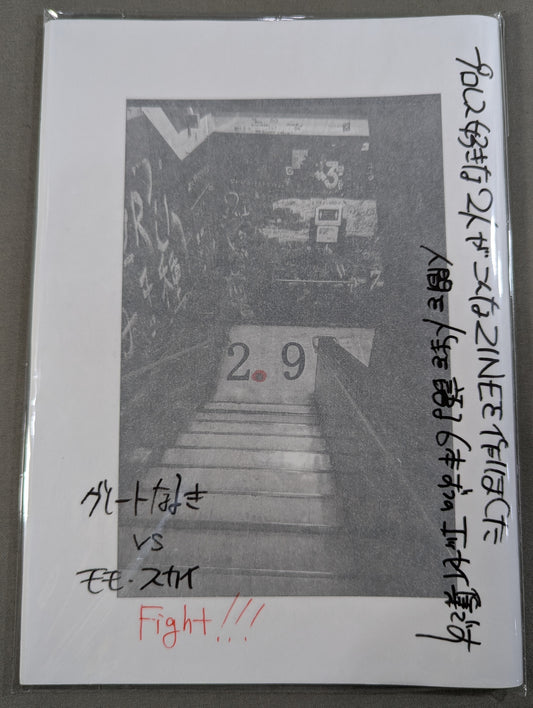 プロレス好きな2人がこんなZINEを作りました
人間を人生を語る61きゅのエッセイ集です
2.9
グレートなおき
vs
モモ・スカイ
Fight!!!